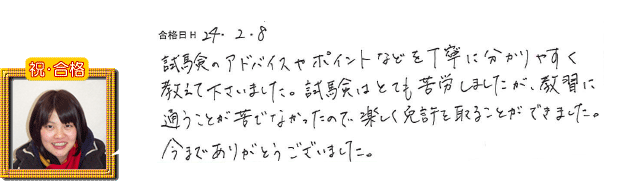 合格日 H 24. 2. 8
試験のアドバイスやポイントなどを丁寧に分かりやすく
祝・合格
教えて下さいました。試験はとても苦労しましたが、教習に
通うことが苦でなかったので楽しく免許を取ることができました。
今までありがとうございました。